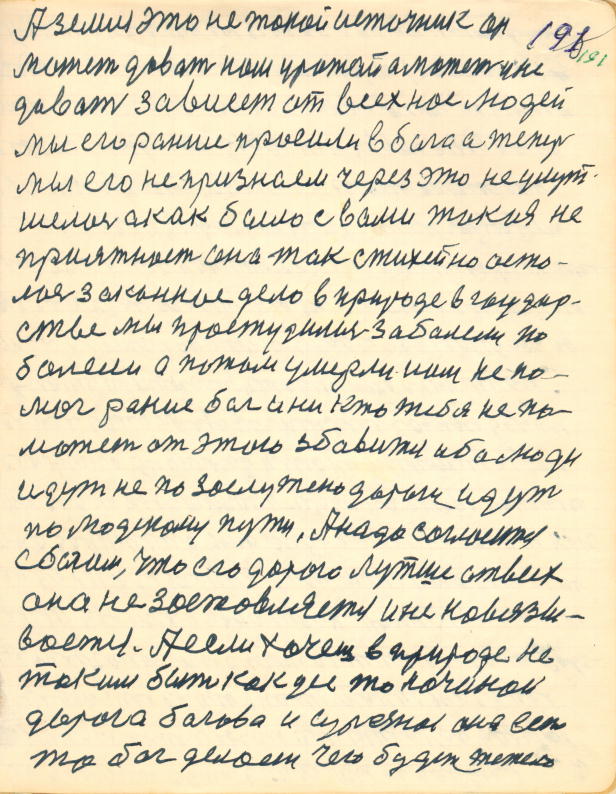 А земля это не такой источник он 191 191
может давать нам урожай а может и не
давать зависет от всех нас людей
мы его ранше просили в бога а тепер
мы его не признаем через это не улут-
шелось а как было с вами такая не
приятност она так стихейно оста-
лась законное дело в природе в гаудар-
стве мы простудилис заболели по
болели а потом умерли нам не по-
мог ранше бог и ни кто тебя не по-
может от этого збавитя ибо люди
идут не по заслужено дороги идут
по людскому пути. А надо согласится
с богом, что его дорога лутше от всех
она не заставляется и не навязы-
вается. А если хочеш в природе не
таким быть как где то
дорога богова и она ест
то бог делает чего будет